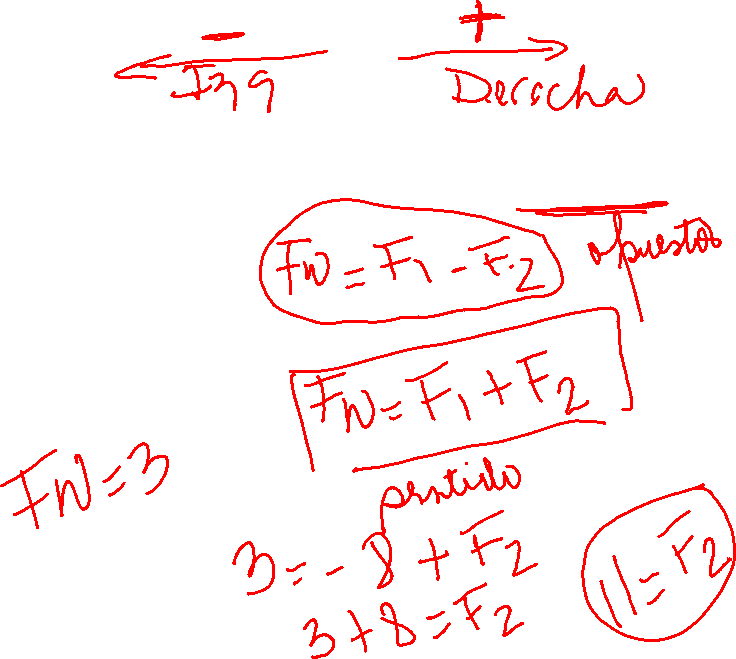 - +
Izq Derecha
FN = F1 - F2 opuestos
FN = F1 + F2
FN = 3
sentido
3 = - 8 + F2
3 + 8 = F2
11 = F2